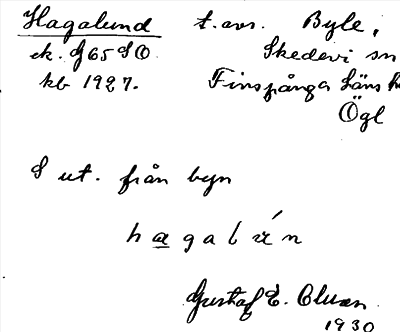 Hagalund t. avs. Byle,
ek. G65 SO. Skedevi sn
kb 1927. Finspånga läns h
Ögl
S ut. från byn
h a g a l ú n
Gustaf E. Cluan
1930